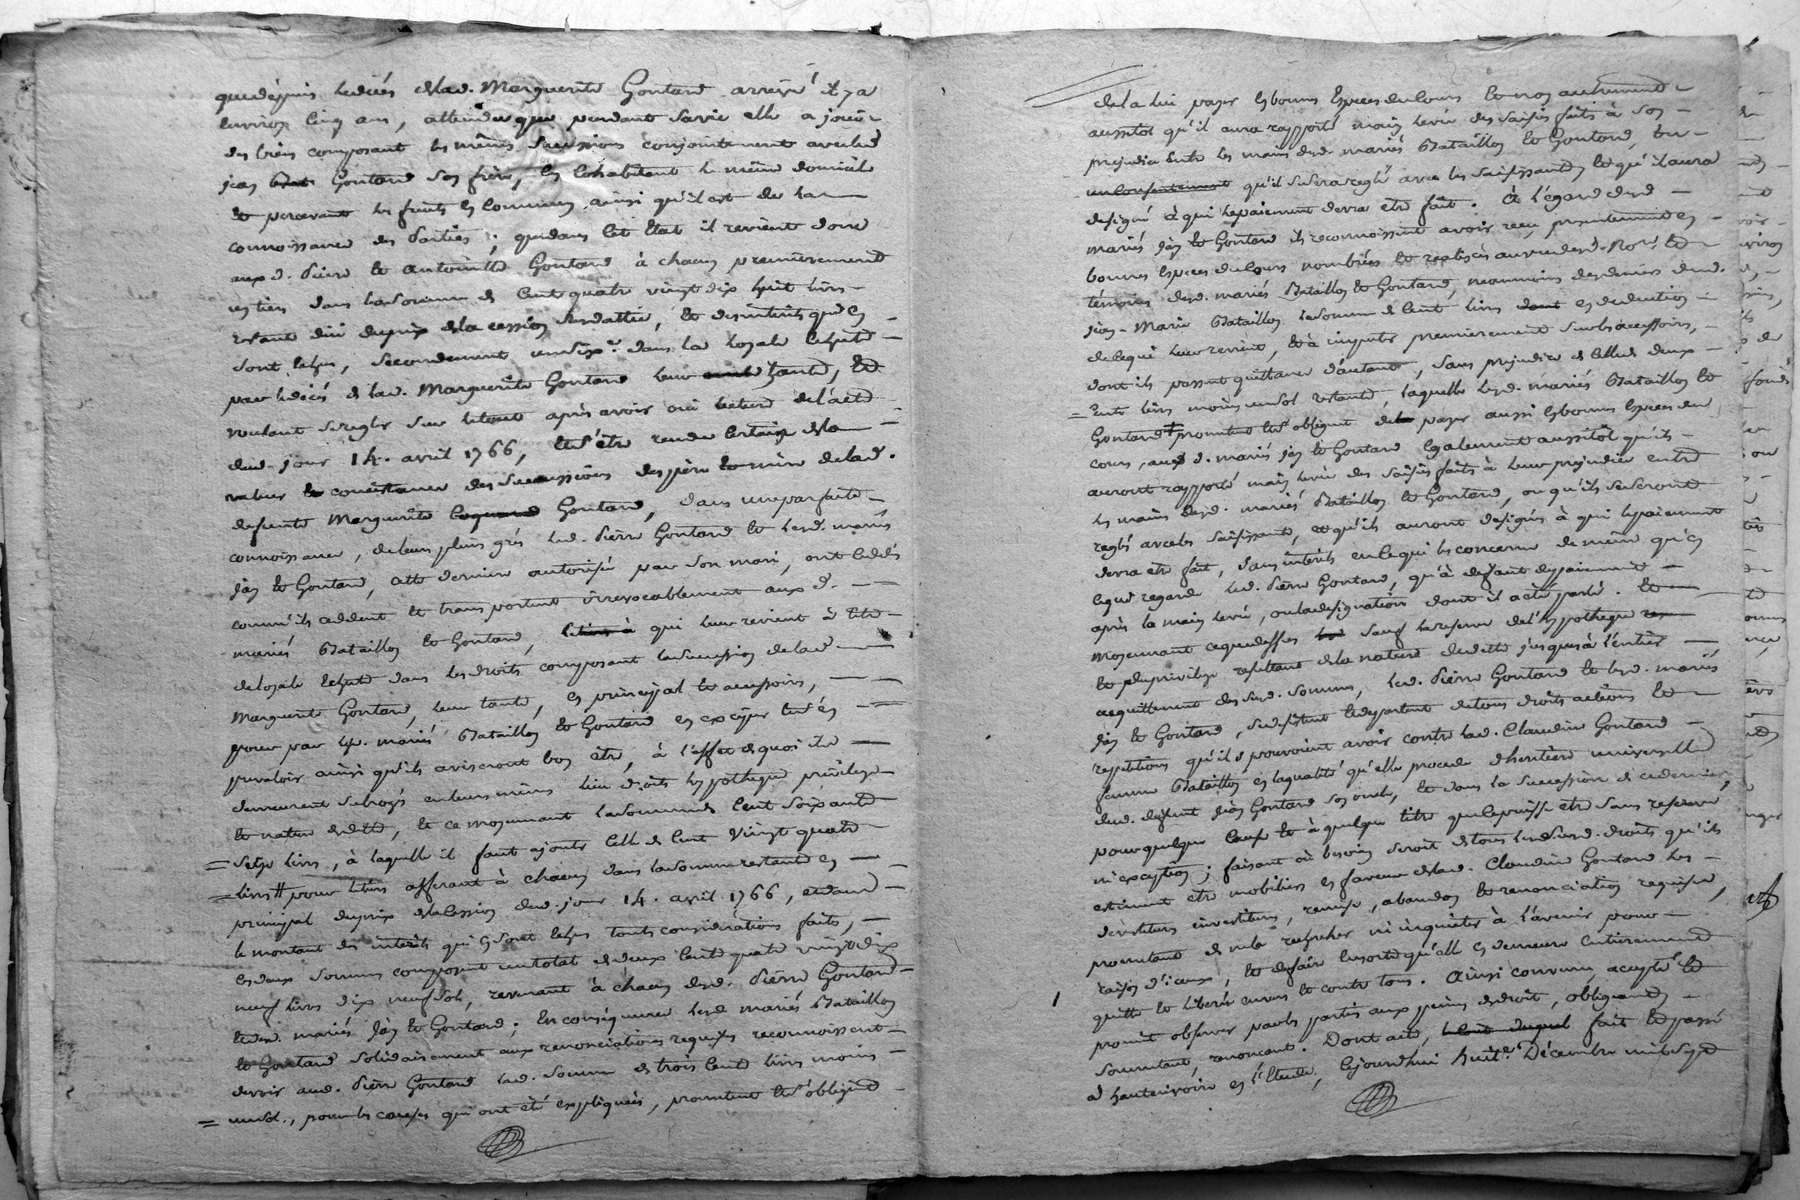 que depuis le décés de lad. Marguerite Gontard arrivé il y a
environ cinq ans, attendu que pendant sa vie elle a jouï
des biens composant les mêmes successions conjointement avec led.
jean Gontard son frère, en cohabitant le même domicile
et percevant les fruits en commun ainsi qu'il est de la
connoissance des parties; que dans cet état il revient donc
aux d. Pierre et Antoinette Gontard à chacun premièrement
un tiers dans la somme de cent quatre vingt dix huit livres
restant dûë du prix de la cession susdattée, et des intérêts qui en
sont echus, secondement un six.e dans la loyale échute
par le décès de lad. Marguerite Gontard leur tante, et
voulant se regler sur le tout après avoir oui lecture de l'acte
dud. jour 14. avril 1766, et s'être rendu certains de la
valeur et consistance des successions des père et mère de lad.
defunte Marguerite Gontard, dans une parfaite
connoissance, de leurs pleins grés led. Pierre Gontard et lesd. mariés
Jâs et Gontard, cette derniere autorisée par son mari, ont cedés
comm'ils cedent et transportent irrevocablement aux d.
mariés Bataillon et Gontard, qui leur revient à titre
de loyale echute dans les droits composant la succession de lad.
Marguerite Gontard, leur tante, en principal et accessoires,
pour par lesd. mariés Bataillon et Gontard en exciper et s'en
prevaloir ainsi qu'ils aviseront bon être, à l'effet de quoi ils
demeurent subrogés en leurs mêmes lieu droits hypotheque privilege
et nature de dette, et ce moyennant la somme de cent soixante
seize livres, à laquelle il faut ajouter celle de cent vingt quatre
livres pour le tiers afferant à chacun dans la somme restante en
principal du prix de la cession dud. jour 14. avril 1766, et dans
le montant des intérêts qui en sont echus toutes considerations faites,
les deux sommes composent un total de deux cents quatre vingt dix
neuf livres dix neuf sols, revenant à chacun desd. Pierre Gontard
et desd. mariés Jâs et Gontard; En conséquence lesd. mariés Bataillon
et Gontard solidairement aux renonciations requises reconnoissent
devoir aud. Pierre Gontard lad. somme de trois cents livres moins
un sol, pour les causes qui ont été expliquées, promettent et s'obligent
de la lui payer en bonnes especes du cours et non autrement
aussitot qu'il aura rapporté main levée des saisies faites à son
prejudice entre les mains desd. mariés Bataillon et Gontard, ou
qu'il se sera reglé avec les saisissants et qu'il aura
designé à qui le paiement devra être fait. À l'égard desd.
mariés Jâs et Gontard ils reconnoissent avoir reçu presentement en
bonnes especes du cours nombrées et realisées au vu desd. Not.re et
témoins desd. mariés Bataillon et Gontard, neanmoins des deniers dud.
Jean-Marie Bataillon la somme de cent livres en deduction
de ce qui leur revient, et à imputer premierement sur les accessoires,
dont ils passent quittance d'autant, sans prejudice de celle de deux
cents livres moins un sol restante, laquelle lesd. mariés Bataillon et
Gontard promettent et s'obligent de payer aussi en bonnes especes du
cours, aux d. mariés Jâs et Gontard egalement aussitôt qu'ils
auront rapporté main levée des saisies faites à leur prejudice entre
les mains desd. mariés Bataillon et Gontard, ou qu'ils se seront
reglés avec les saisissants, et qu'ils auront designés à qui le paiement
devra être fait, sans intérêts en ce qui les concerne de même qu'en
ce qui regarde led. Pierre Gontard, qu'à defaut de paiement
après la main levée, ou la designation dont il a été parlé. et
moyennant ce que dessus sauf la reserve de l'hypotheque
et du privilege resultant de la nature de dette jusques à l'entier
acquittement desd. sommes, led. Pierre Gontard et lesd. mariés
Jâs et Gontard, se desistent et departent de tous droits actions et
repetitions qu'ils pouvoient avoir contre lad. Claudine Gontard
femme Bataillon en la qualité qu'elle procede d'heritiere universelle
dud. defunt Jean Gontard son oncle, et dans la succession de ce dernier,
pour quelque cause et à quelque titre que ce puisse être sans reserve
ni exception; faisant où besoin seroit de tous lesd. droits qu'ils
estiment etre mobiliers en faveur de lad. Claudine Gontard les
devestitures investitures, remise, abandon et renonciation requises,
promettant de ne la rechercher ni inquieter à l'avenir pour
raison d'iceux, et de faire en sorte qu'elle en demeure entierement
quitte et liberée envers et contre tous. Ainsi convenu accepté et
promis observer par les parties aux peines de droit, obligeants
soumettant, renonçant. Dont acte, fait et passé
à hauterivoire en l'étude, cejourdhui huit.e Décembre mil sept